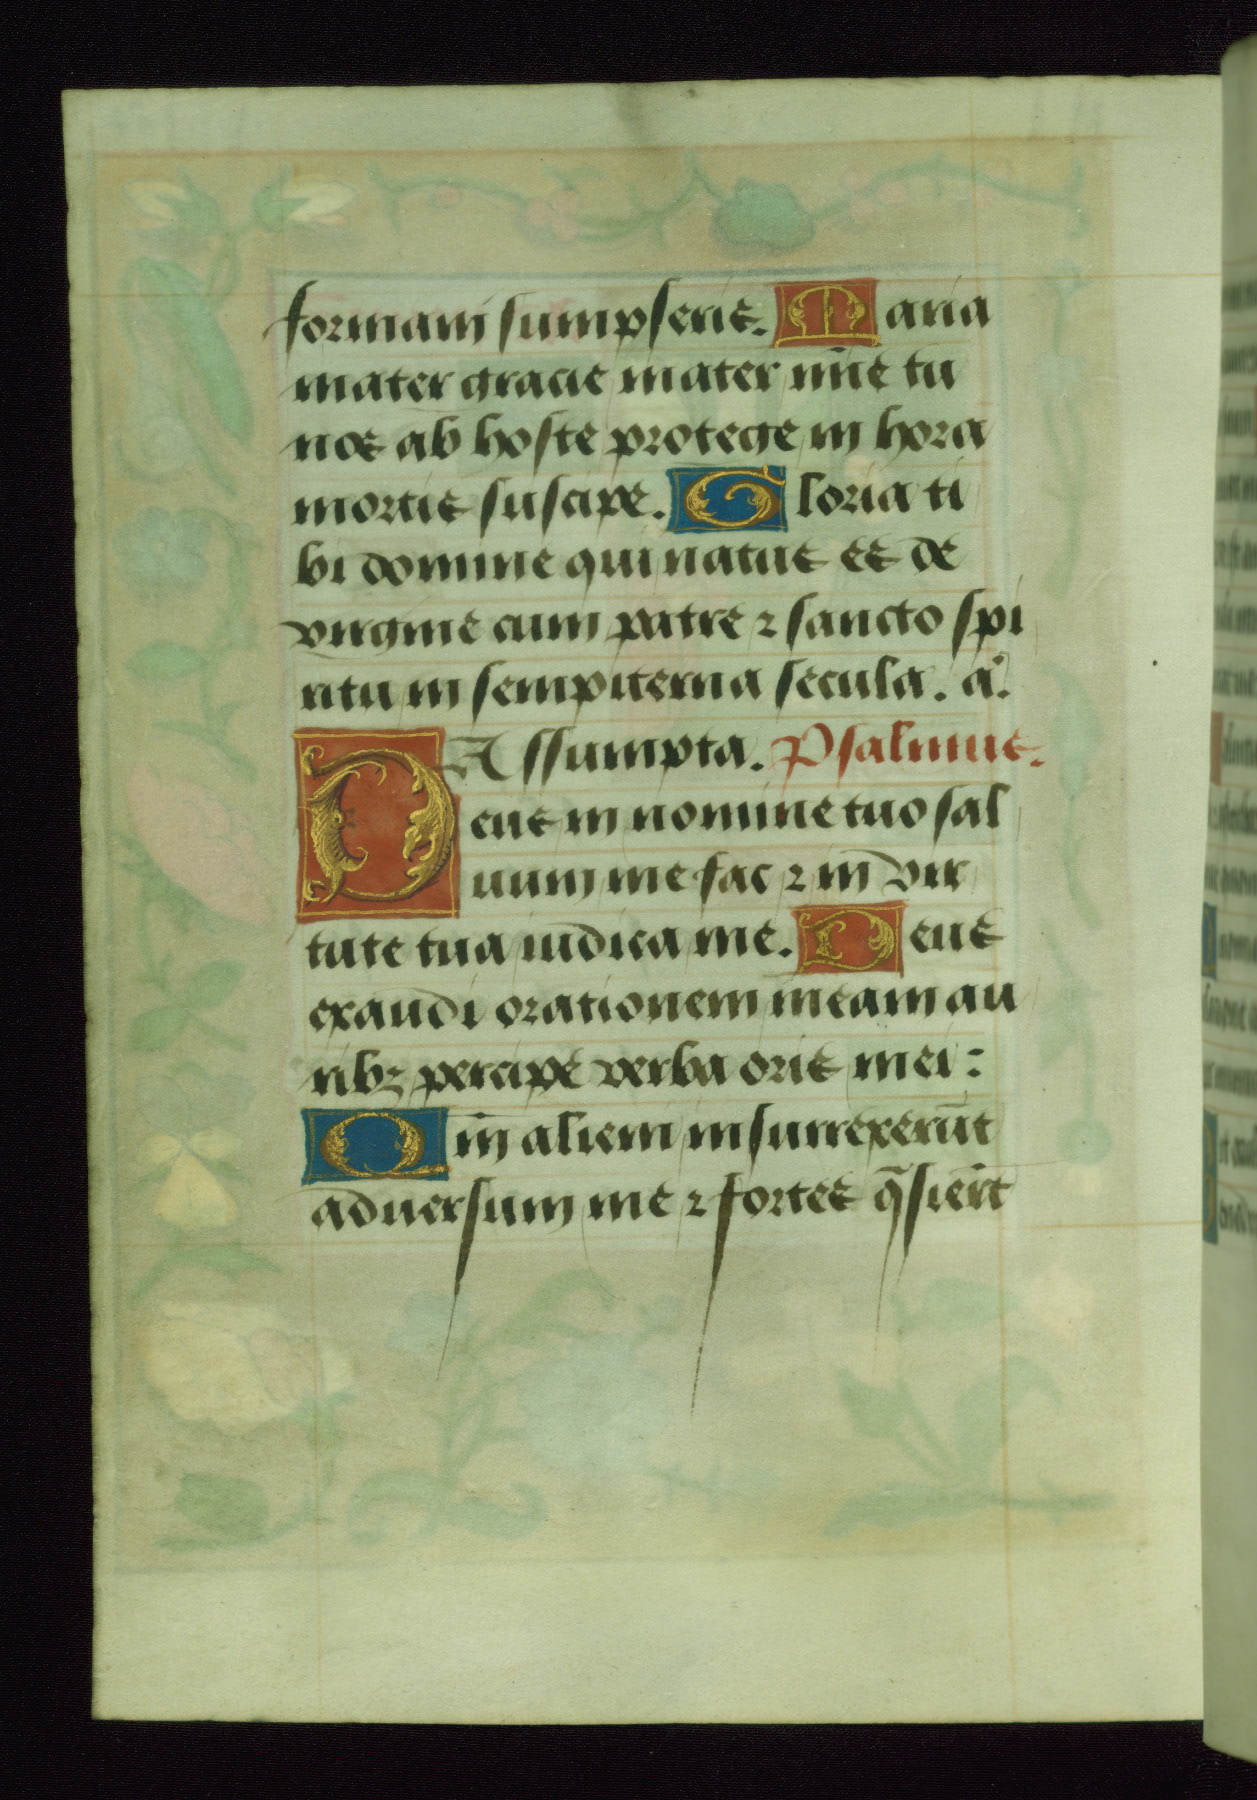 formam sumpseris. Maria
mater gracie mater mīe tu
nos ab hoste protege in hora
mortis suscipe. Gloria ti
bi domine qui natus es de
virgine cum patre ⁊ sancto spi
ritu in sempiterna secula. a.
Assumpta. Psalmus.
Deus in nomine tuo sal
uum me fac ⁊ in vir
tute tua iudica me. Deus
exaudi orationem meam au
ribꝫ percipe verba oris mei:
Qm̄ aliem insurrexerūt
aduersum me ⁊ fortes q̄sierūt